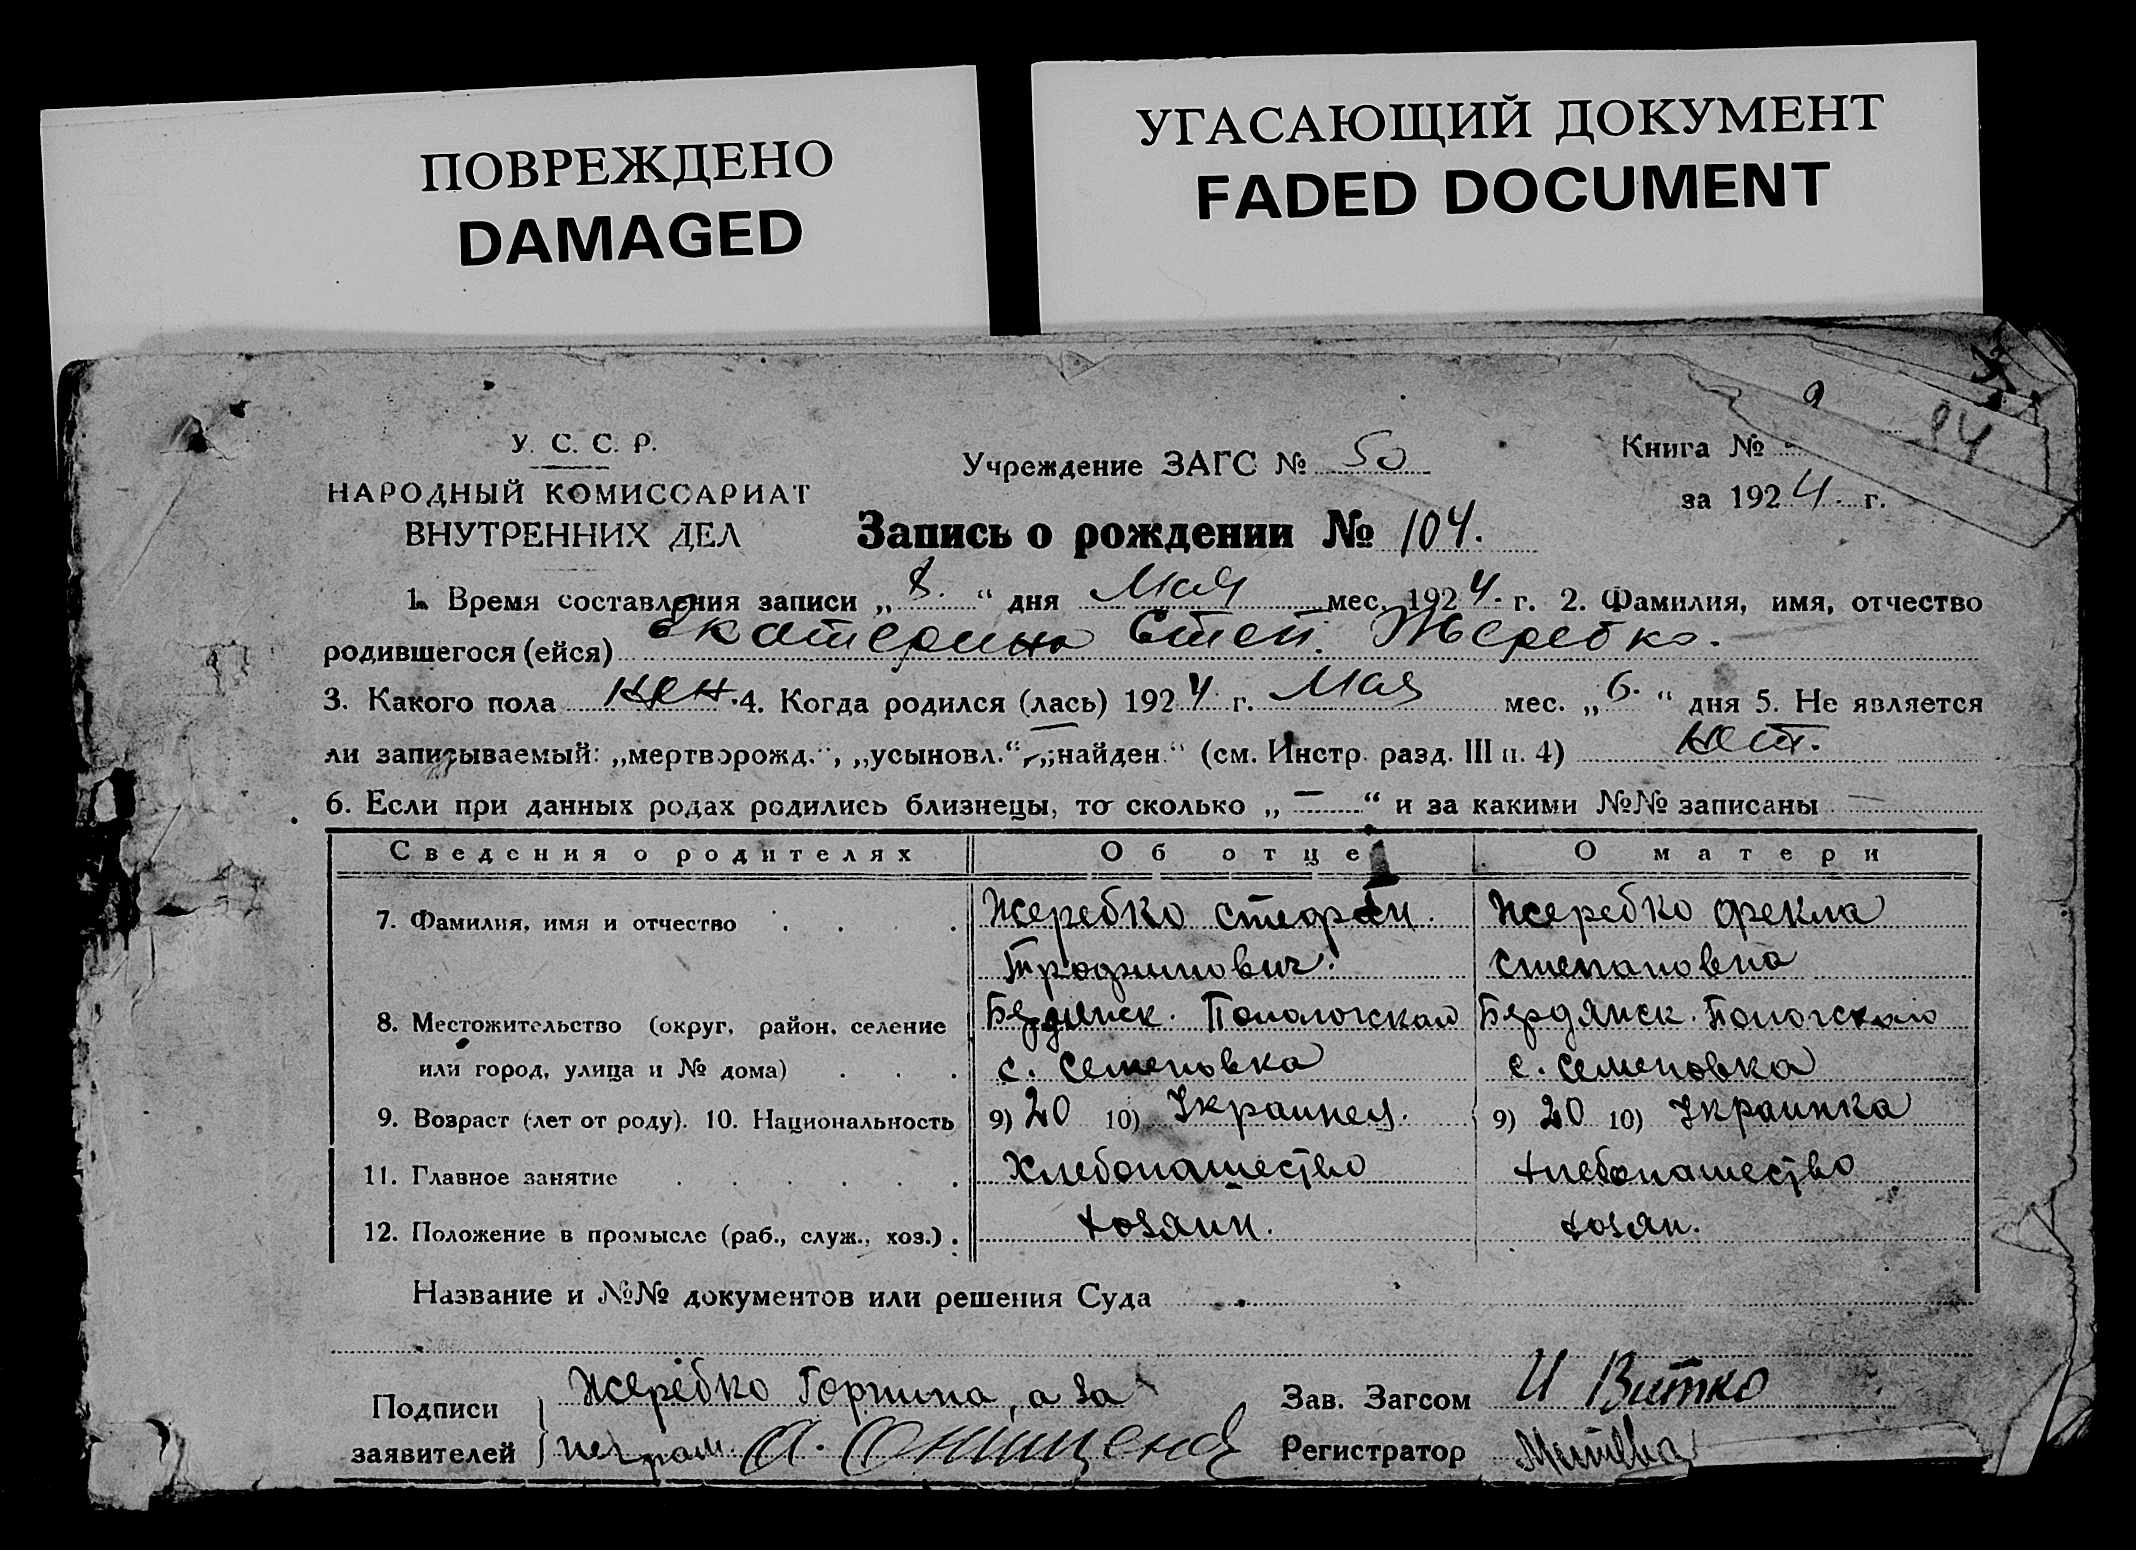 ПОВРЕЖДЕНО
DAMAGED
УГАСАЮЩИЙ ДОКУМЕНТ
FADED DOCUMENT
9
94
У. С. С. Р.
НАРОДНЫЙ КОМИССАРИАТ
ВНУТРЕННИХ ДЕЛ
Учреждение ЗАГС № 50
Книга №
за 1924 г.
Запись о рождении № 104.
1. Время составления записи „8.“ дня Мая мес. 1924 г. 2. Фамилия, имя, отчество
родившегося (ейся) Екатерина Степ. Жеребко.
3. Какого пола жен. 4. Когда родился (лась) 1924 г. Мая мес. „6.“ дня 5. Не является
ли записываемый: „мертворожд.“, „усыновл.“, „найден.“ (см. Инстр. разд. III п. 4) нет.
6. Если при данных родах родились близнецы, то сколько „—“ и за какими №№ записаны —
Сведения о родителях Об отце О матери
7. Фамилия, имя и отчество . . . . Жеребко Стефан. Жеребко Фекла
Трофимович. Степановна
8. Местожительство (округ, район, селение Бердянск. Пологская Бердянск. Пологская
или город, улица и № дома) . . . с. Семеновка с. Семеновка
9. Возраст (лет от роду). 10. Национальность 9) 20 10) Украинец. 9) 20 10) Украинка
11. Главное занятие . . . . . . Хлебопашество Хлебопашество
12. Положение в промысле (раб., служ., хоз.) . хозяин. хозяи.
Название и №№ документов или решения Суда
Подписи заявителей } Жеребко Горпина, а за
неграм. А. Онищенко
Зав. Загсом И Витко
Регистратор